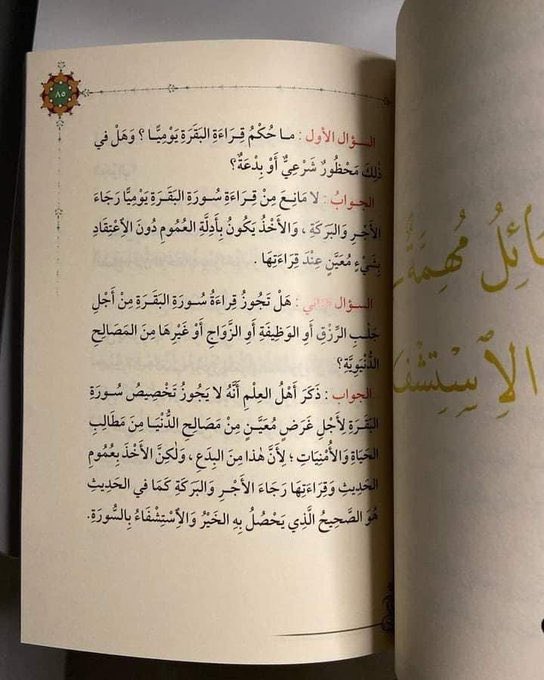 ٨٥
السؤال الأول : مـا حُكْمُ قِـرَاءَةِ البَقَـرَةِ يَوْمِيًّـا ؟ وَهَلْ فِي
ذٰلِكَ مَحْظُورٌ شَرْعِيٌّ أَوْ بِدْعَةٌ؟
الجوابُ : لا مَانِـعَ مِنْ قِرَاءَةِ سُـورَةِ البَقَـرَةِ يَوْمِيًّا رَجَاءَ
الأَجْـرِ وَالبَرَكَةِ ، وَالأَخْذُ يَكُونُ بِأَدِلَّةِ العُمُومِ دُونَ الاِعْتِقَادِ
بِشَيْءٍ مُعَيَّنٍ عِنْدَ قِرَاءَتِهَا .
السؤال الثاني : هَلْ تَجُوزُ قِراءَةُ سُـورَةِ البَقَـرَةِ مِنْ أَجْلِ
جَلْبِ الرِّزْقِ أَو الوَظِيفَةِ أَو الزَّوَاجِ أَوْ غَيْرِهَا مِنَ المَصَالِحِ
الدُّنْيَوِيَّةِ؟
الجواب : ذَكَرَ أَهْلُ العِلْمِ أَنَّهُ لا يَجُوزُ تَخْصِيصُ سُـورَةِ
البَقَرَةِ لِأَجْلِ غَرَضٍ مُعَيَّـنٍ مِنْ مَصَالِحِ الدُّنْيَـا مِن مَطَالِبِ
الحَيَاةِ وَالأُمْنِيَاتِ ؛ لِأَنَّ هٰذا مِنَ البِدَعِ ، وَلٰكِنَّ الأَخْذَ بِعُمُومِ
الحَدِيثِ وَقِرَاءَتِهَا رَجَاءَ الأَجْـرِ وَالبَرَكَةِ كَمَا في الحَدِيثِ
هُوَ الصَّحِيحُ الَّذِي يَحْصُلُ بِهِ الخَيْرُ وَالاِسْتِشْفَاءُ بِالسُّورَةِ.
مُهِمَّةٌ